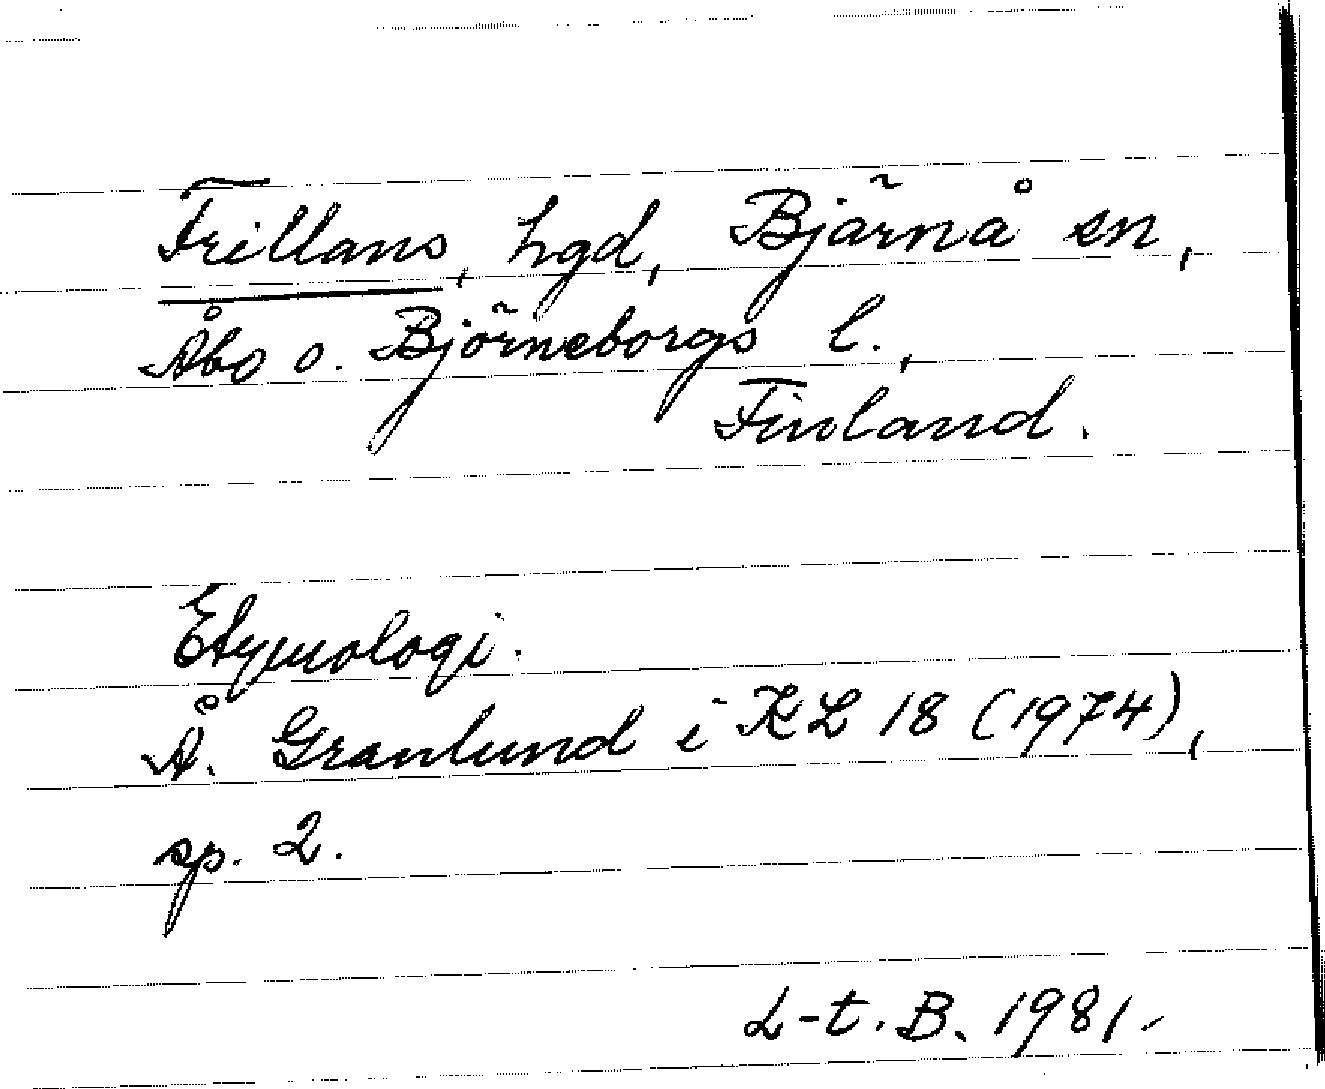 Frillans, hgd, Bjärnå sn,
Åbo o. Björneborgs l.,
Finland.
Etymologi.
Å. Granlund i KL 18 (1974),
sp. 2.
L-t. B. 1981.